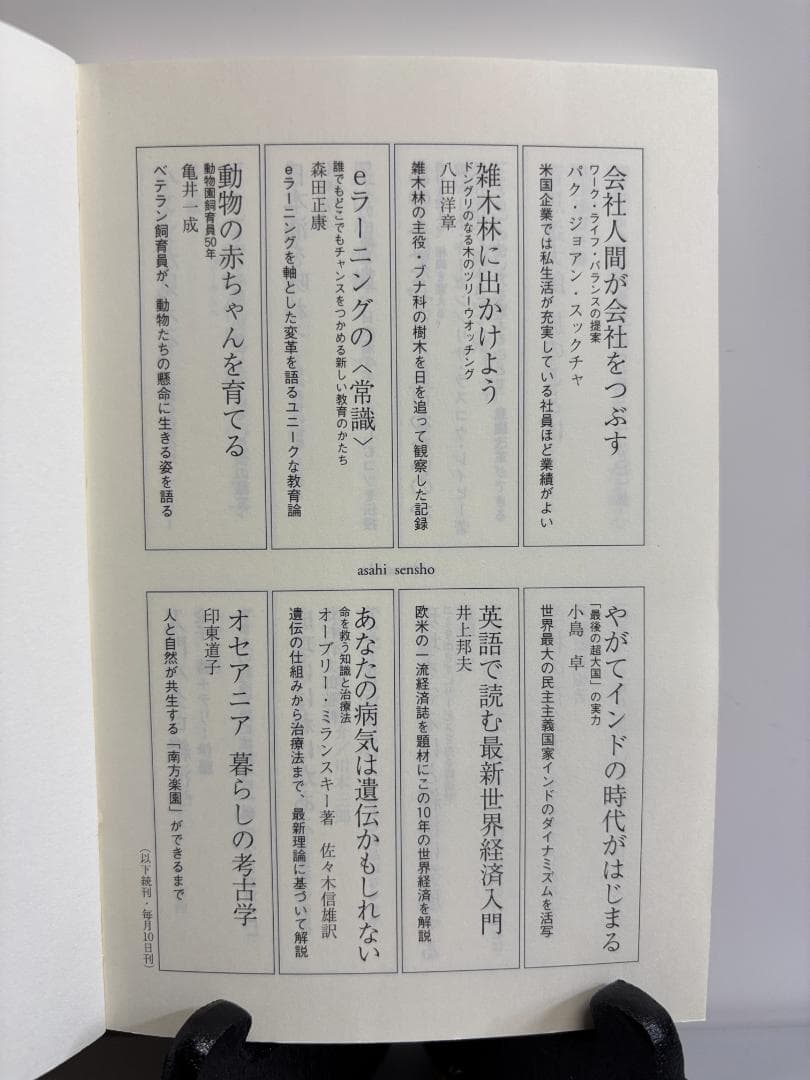 会社人間が会社をつぶす
ワーク・ライフ・バランスの提案
パク・ジョアン・スックチャ
米国企業では私生活が充実している社員ほど業績がよい
雑木林に出かけよう
ドングリのなる木のツリーウオッチング
八田洋章
雑木林の主役・ブナ科の樹木を日を追って観察した記録
eラーニングの〈常識〉
誰でもどこでもチャンスをつかめる新しい教育のかたち
森田正康
eラーニングを軸とした変革を語るユニークな教育論
動物の赤ちゃんを育てる
動物園飼育員50年
亀井一成
ベテラン飼育員が、動物たちの懸命に生きる姿を語る
asahi sensho
やがてインドの時代がはじまる
「最後の超大国」の実力
小島 卓
世界最大の民主主義国家インドのダイナミズムを活写
英語で読む最新世界経済入門
井上邦夫
欧米の一流経済誌を題材にこの10年の世界経済を解説
あなたの病気は遺伝かもしれない
命を救う知識と治療法
オーブリー・ミランスキー著 佐々木信雄訳
遺伝の仕組みから治療法まで、最新理論に基づいて解説
オセアニア 暮らしの考古学
印東道子
人と自然が共生する「南方楽園」ができるまで
(以下続刊・毎月10日刊)